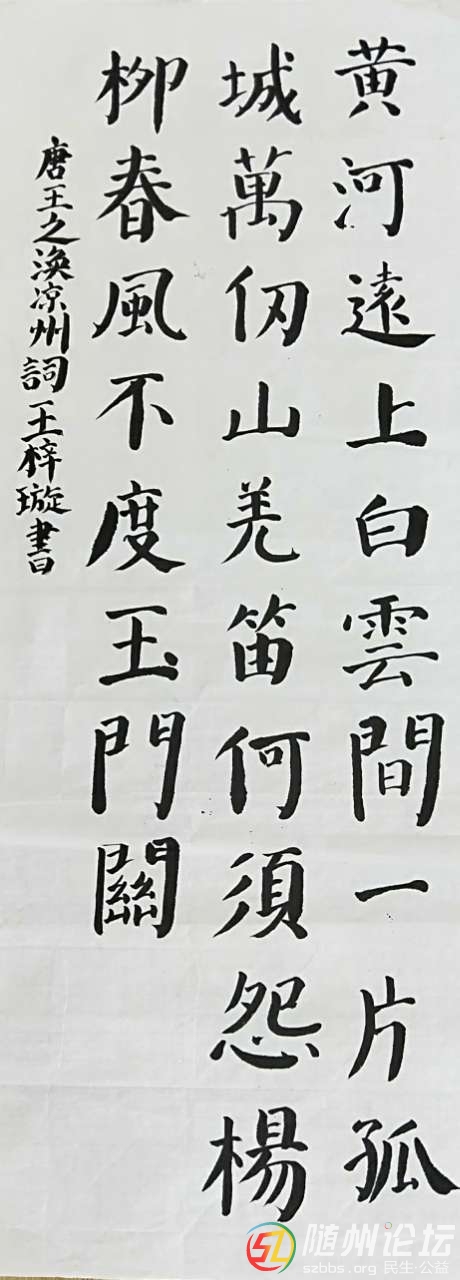 黄河遠上白雲間一片孤
城萬仞山羌笛何須怨楊
柳春風不度玉門關
唐王之渙凉州詞王梓璇書
随州论坛
szbbs.org 民生·公益